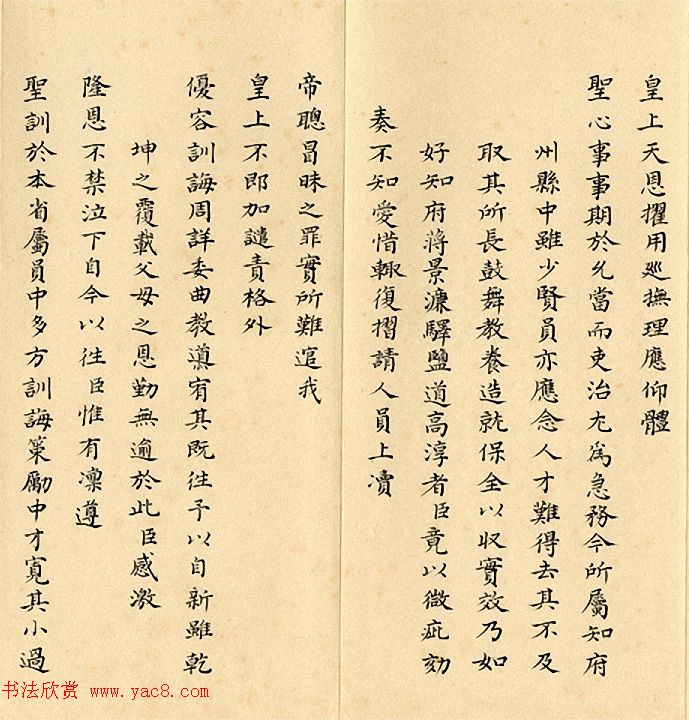 皇上天恩擢用巡撫理應仰體
聖心事事期於允當而吏治尤為急務今所屬知府
州縣中雖少賢員亦應念人才難得去其不及
取其所長鼓舞教養造就保全以收實效乃如
好知府蔣景濂驛鹽道高淳者臣竟以微疵劾
奏不知愛惜輙復摺請人員上瀆
帝聰冒昧之罪實所難逭我
皇上不即加譴責格外
優容訓誨周詳委曲教導宥其既往予以自新雖乾
坤之覆載父母之恩勤無逾於此臣感激
隆恩不禁泣下自今以往臣惟有凜遵
聖訓於本省屬員中多方訓誨策勵中才寬其小過
书法欣赏 www.yac8.com